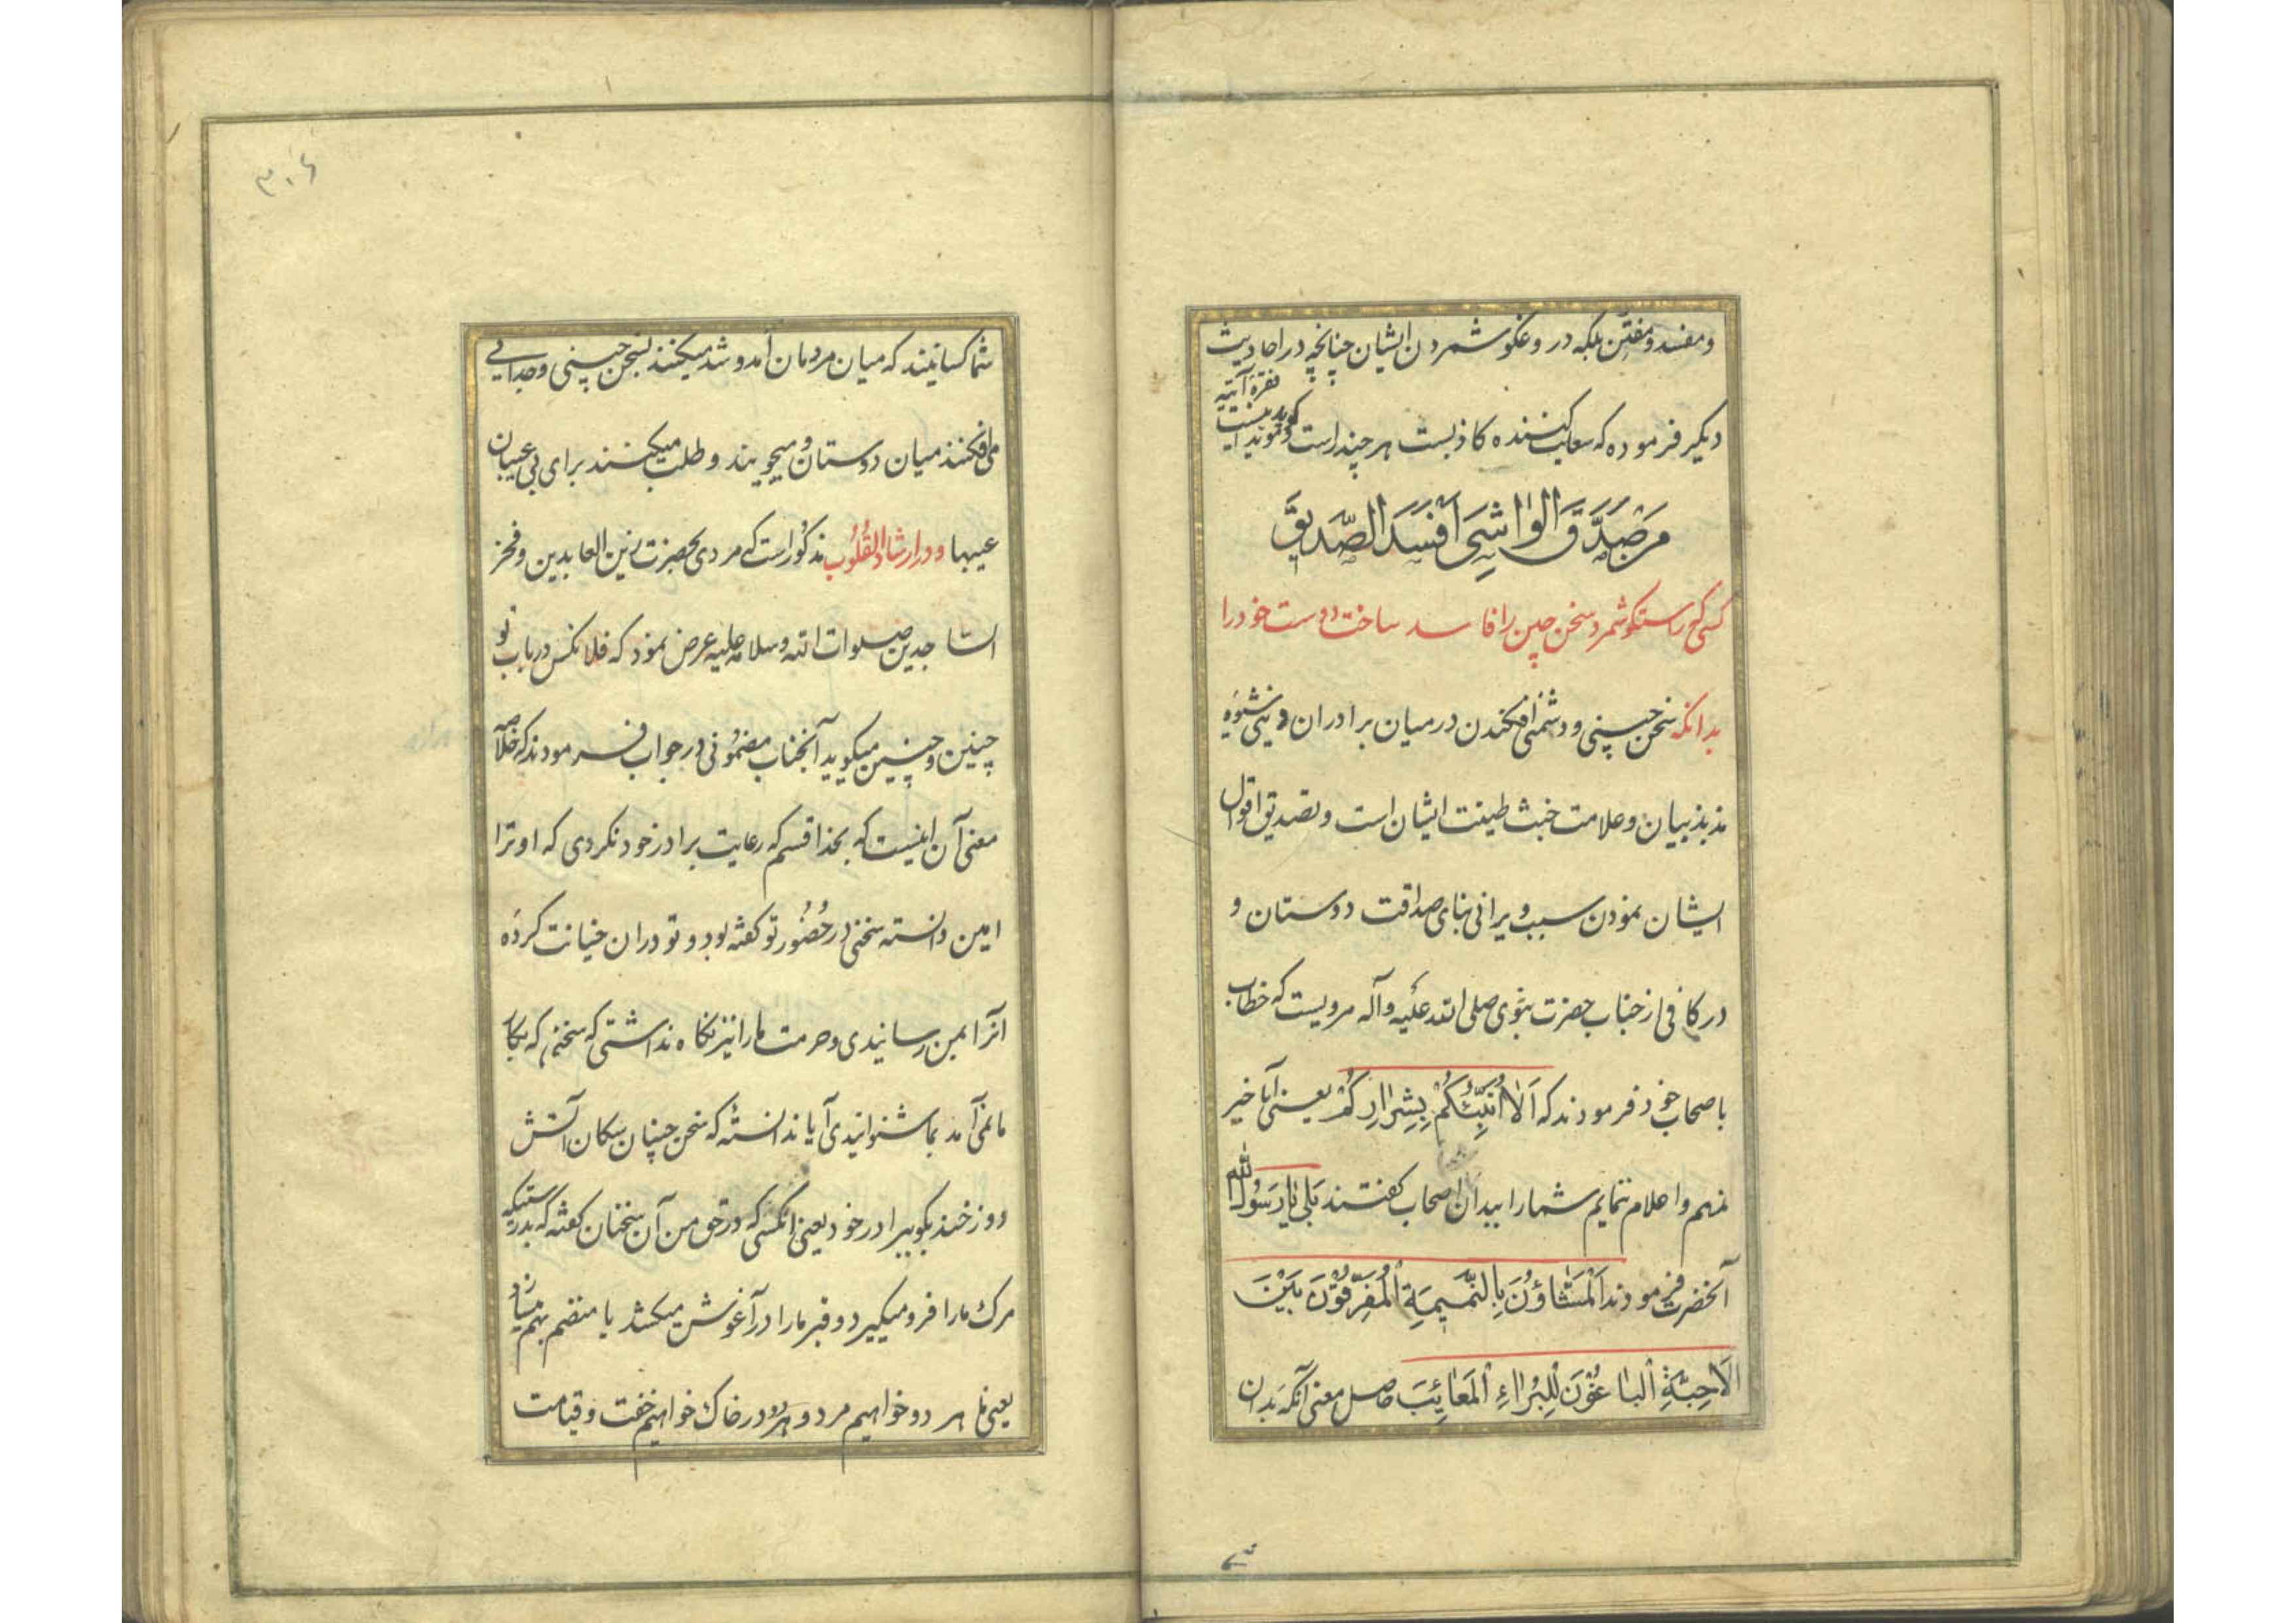 و مفسد و مفتن بلکه دروغگو شمردن ایشان چنانچه در احادیث
دیگر فرموده که سعایت کننده کاذبست هر چند راست گوید
فقره آتیه
مؤید اینست
مَنْ صَدَّقَ الْواشِیَ اَفْسَدَ الصَّدیقَ
کسی که راستگو شمرد سخن چین را فاسد ساخت دوست خود را
بدانکه سخن چینی و دشمنی افکندن در میان برادران دینی شیوهٔ
مذبذبیان و علامت خبث طینت ایشان است و تصدیق اقوال
ایشان نمودن سبب ویرانی بنای صداقت دوستان و
در کافی از جناب حضرت نبوی صلی الله علیه وآله مرویست که خطاب
باصحاب خود فرمودند که اَلا اُنَبِّئُکُمْ بِشِرارِکُمْ یعنی آیا خبر
ندهم و اعلام ننمایم شما را ببدان اصحاب گفتند بَلی یا رَسُولَ الله
آنحضرت فرمودند اَلْمَشّاؤُنَ بِالنَّمیمَةِ اَلْمُفَرِّقُونَ بَیْنَ
الْاَحِبَّةِ اَلْباغُونَ لِلْبُرَاءِ الْمَعائِبَ حاصل معنی آنکه بدان
ش
۳۰۶
شما کسانیند که میان مردمان آمد و شد میکنند بسخن چینی و جدایی
می افکنند میان دوستان و میجویند و طلب میکنند برای بی عیبان
عیبها و در ارشاد القلوب مذکور است که مردی بحضرت زین العابدین و فخر
الساجدین صلوات الله و سلامه علیه عرض نمود که فلانکس در باب تو
چنین و چنین میگوید آنجناب مضمونی در جواب فرمودند که خلاصه
معنی آن اینست که بخدا قسم که رعایت برادر خود نکردی که او ترا
امین دانسته سخنی در حضور تو گفته بود و تو در ان خیانت کرده
آنرا بمن رسانیدی و حرمت ما را نیز نگاه نداشتی که سخنیم که بکار
ما نمی آمد بما شنوانیدی آیا ندانستهٔ که سخن چینان سکان آتش
دوزخند بگو ببرادر خود یعنی انکسی که در حق من آن سخنان گفته که بدرستیکه
مرک ما را فرو میگیرد و قبر ما را در آغوش میکشد یا منضم بهم میسازد
یعنی ما هر دو خواهیم مرد و هر دو در خاک خواهیم خفت و قیامت